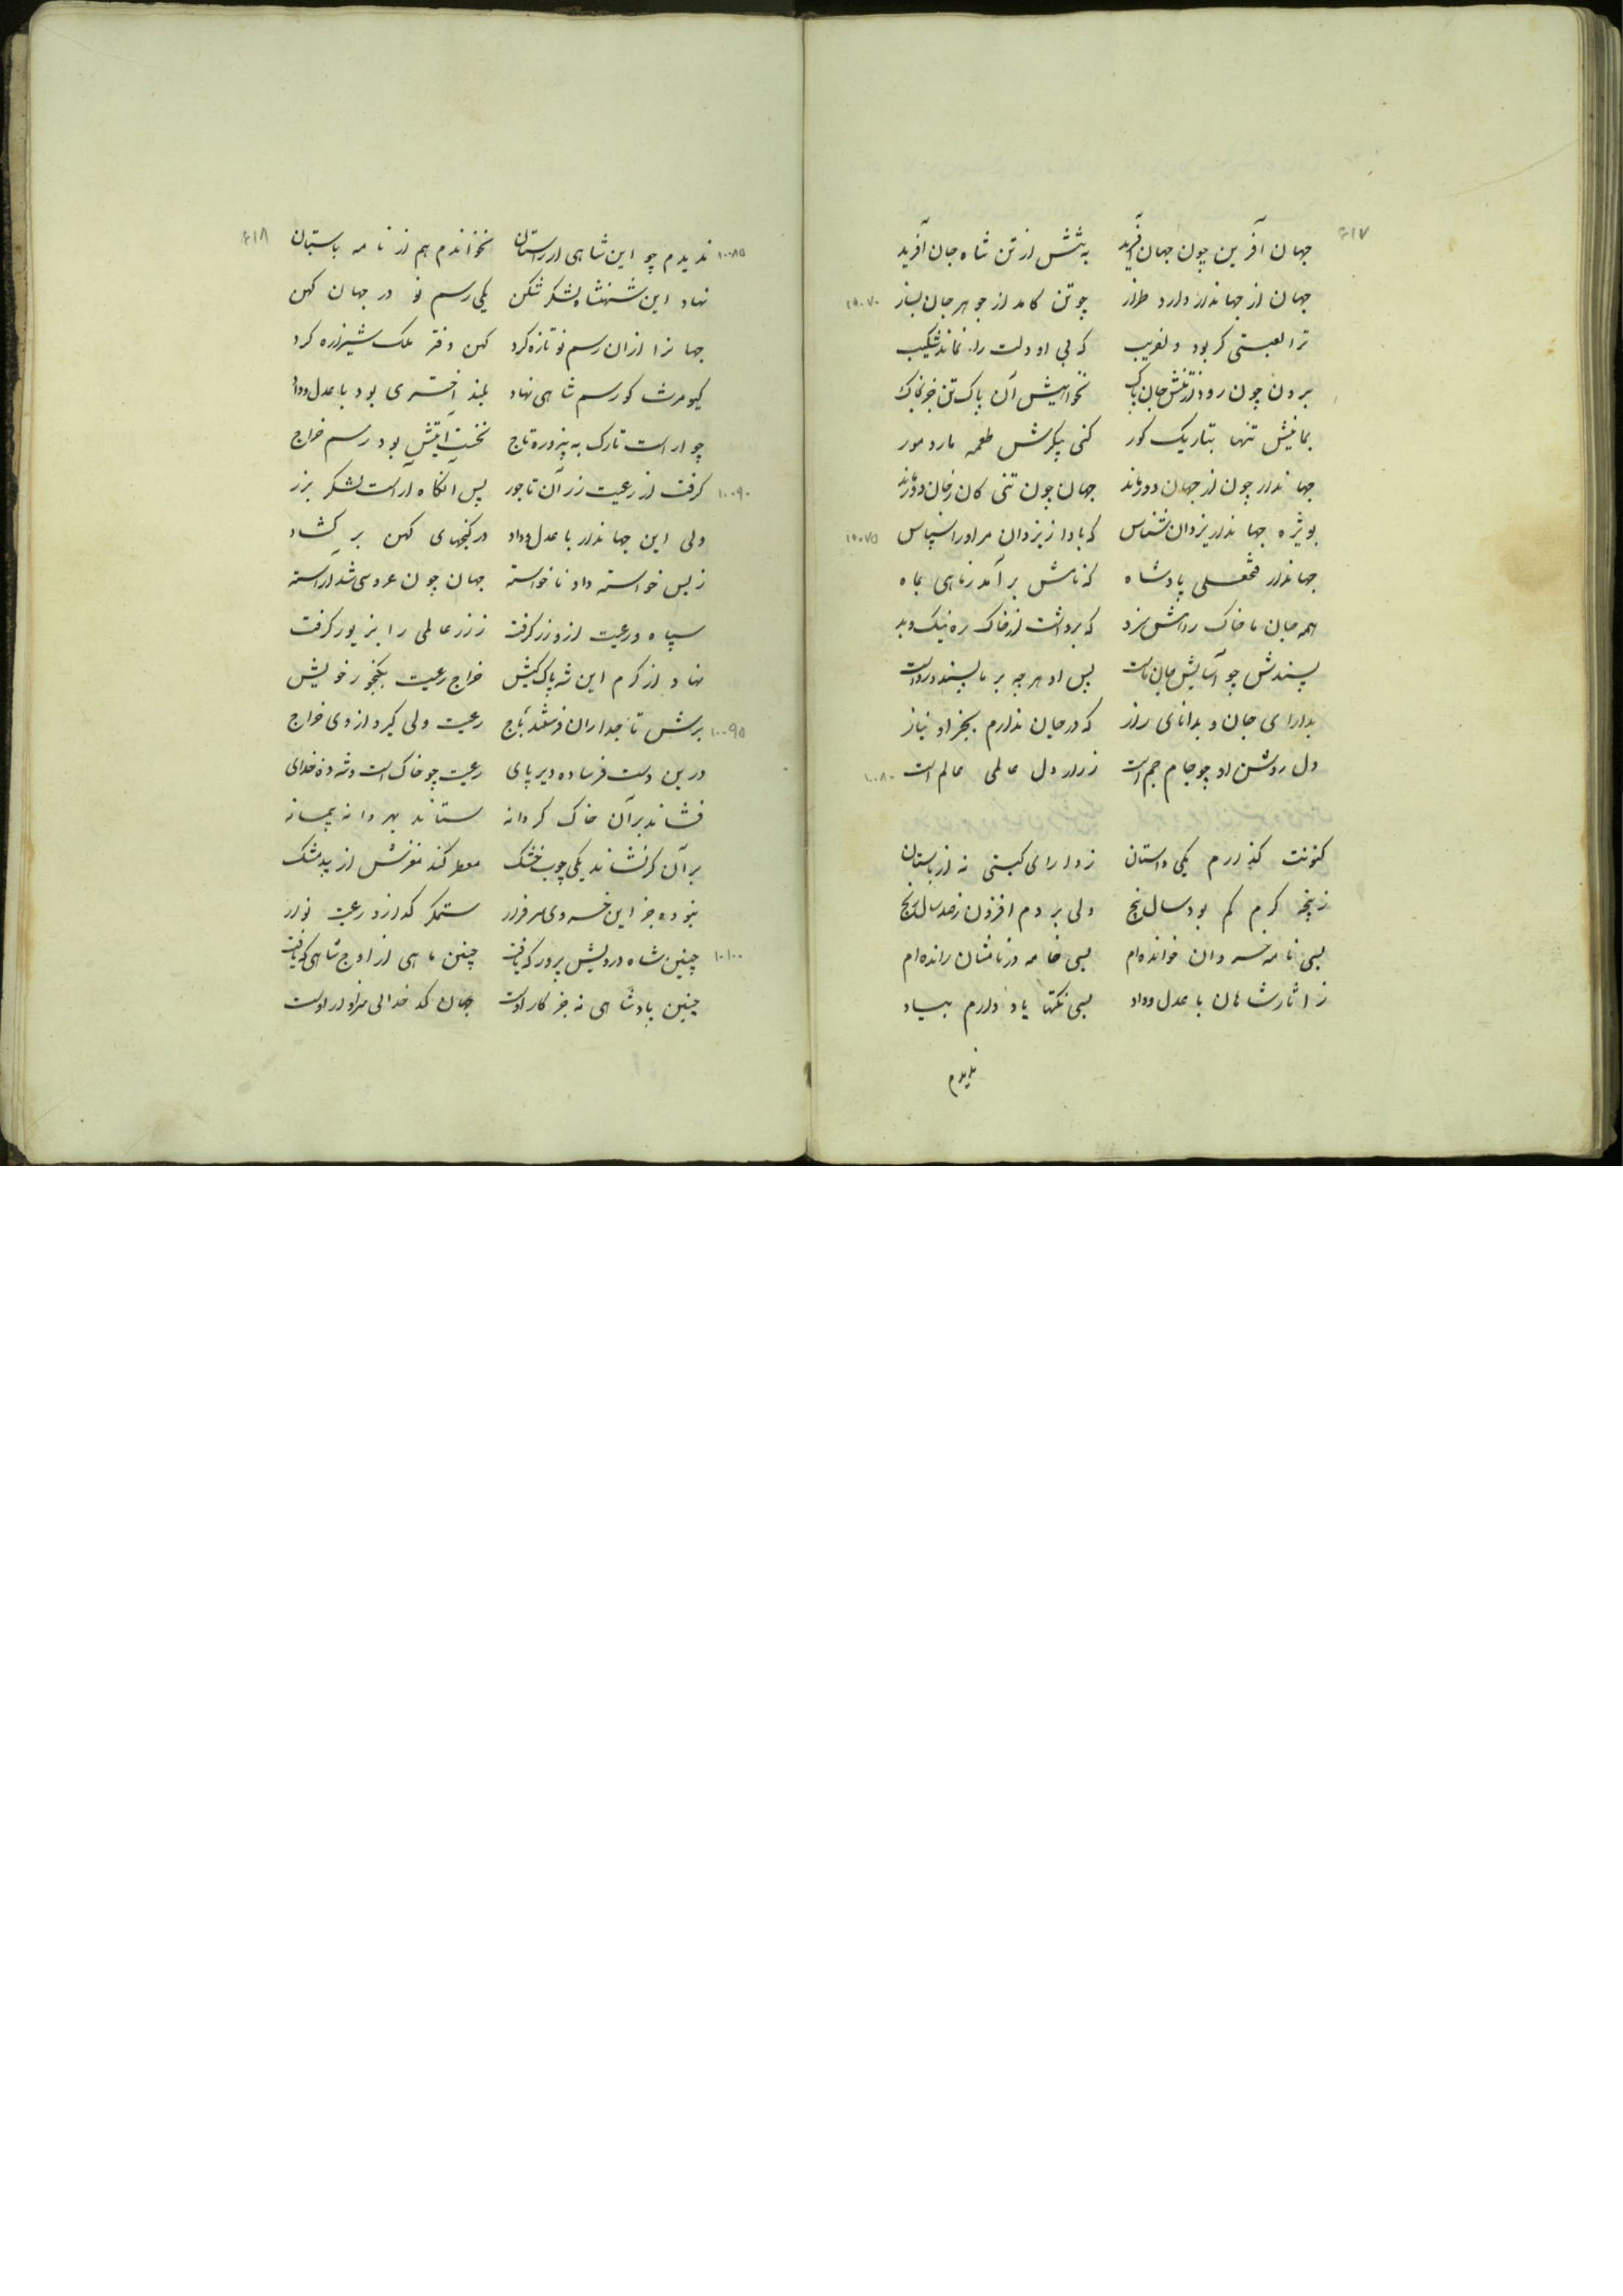 ۶۱۷
جهان آفرین چون جهان آفرید به تنش از تن شاه جان آفرید
جهان از جهاندار دارد طراز چو تن کامد از جوهر جان بساز ۱۰۰۷۰
ترا لعبتی کر بود دلفریب که بی او دلت را نماند شکیب
برون چون رود از تنش جان پاک نخواهیش آن پاک تن جز بخاک
بمانیش تنها بتاریک کور کنی پیکرش طعمه مار و مور
جهاندار چون از جهان دور ماند جهان چون تنی کان ز جان دور ماند
بویژه جهاندار یزدان شناس که بادا ز یزدان مر او را سپاس ۱۰۰۷۵
جهاندار فتحعلی پادشاه که نامش بر آمد ز ماهی بماه
همه جان ما خاک راهش سزد که برداشت از خاک ره نیک و بد
پسندش چو آسایش جان ماست پس او هر چه بر ما پسندد رواست
بدارای جان و بدانای راز که در جان ندارم بجز او نیاز
دل روشن او چو جام جم است ز راز دل عالمی عالم است ۱۰۰۸۰
کنونت کذارم یکی داستان ز دارای کیتی نه از باستان
ز پنجه کرم کم بود سال پنج ولی بردم افزون ز صد سال رنج
بسی نامه خسروان خوانده‌ام بسی خامه در نامشان رانده‌ام
ز آثار شاهان با عدل و داد بسی نکتها یاد دارم بیاد
ندیدم
۶۱۸
۱۰۰۸۵ ندیدم چو این شاهی از راستان نخواندم هم از نامه باستان
نهاد این شهنشاه لشکر شکن یکی رسم نو در جهان کهن
جهانرا ازان رسم نو تازه کرد کهن دفتر ملک شیرازه کرد
کیومرث کو رسم شاهی نهاد بلند اختری بود با عدل و داد
چو آراست تارک به پیروزه تاج نخست آیتش بود رسم خراج
۱۰۰۹۰ کرفت از رعیت زر آن تاجور پس آنکاه آراست لشکر بزر
ولی این جهاندار با عدل و داد در کنجهای کهن بر کشاد
ز بس خواسته داد ناخواسته جهان چون عروسی شد آراسته
سپاه و رعیت ازو زر کرفت ز زر عالمی را بزیور کرفت
نهاد از کرم این شه پاک کیش خراج رعیت بکنجور خویش
۱۰۰۹۵ برش تاجداران فرستند باج رعیت ولی کیرد از وی خراج
درین دست فرساده دیر پای رعیت چو خاک است و شه ده خدای
فشاند بر آن خاک کر دانه ستاند بهر دانه پیمانه
بر آن کر نشاند یکی چوب خشک معطر کند مغزش از بید مشک
نبوده جز این خسروی سرفراز ستمکر کداز و رعیت نواز
۱۰۱۰۰ چنین شاه درویش پرور که یافت چنین ماهی از اوج شاهی که تافت
چنین پادشاهی نه جز کار اوست جهان کدخدائی سزاوار اوست